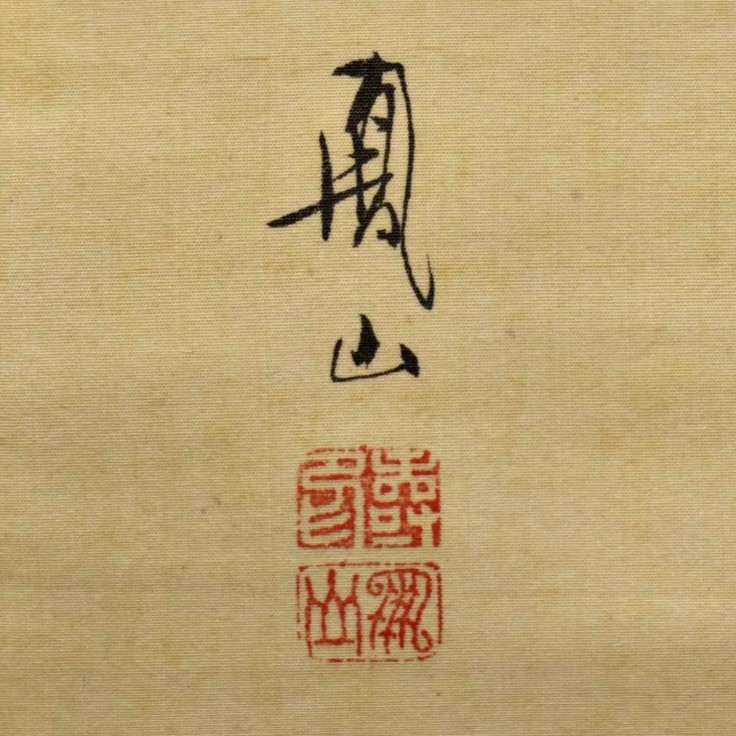 鳳山
鳳山